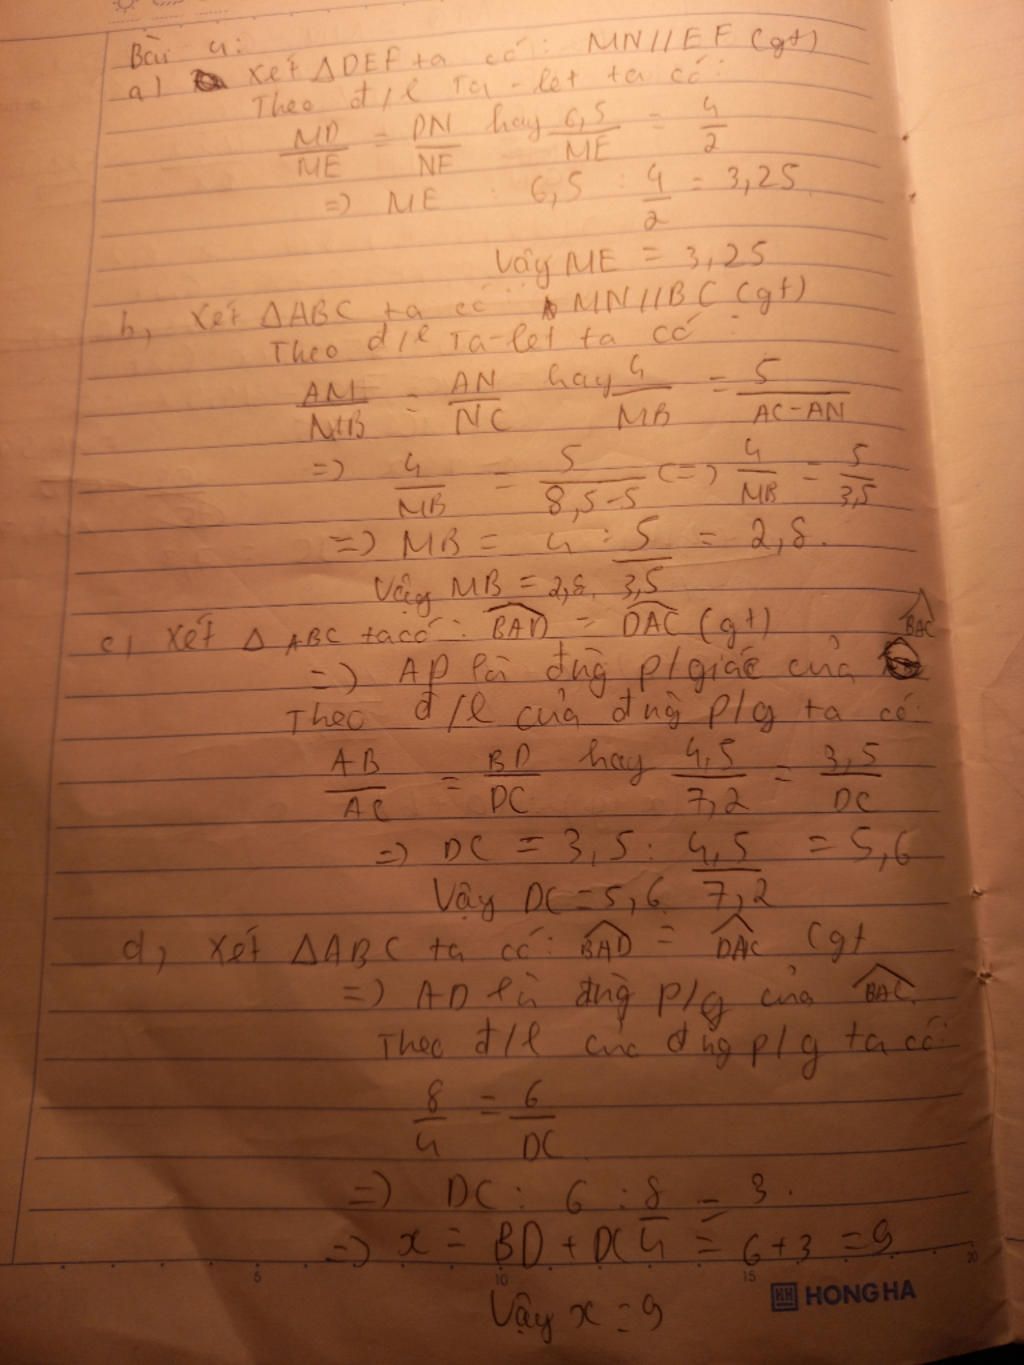 Bài 4:
a) Xét ΔDEF ta có: MN//EF (gt)
Theo đ/l Ta-lét ta có:
MD/ME = DN/NE hay 6,5/ME = 4/2
=> ME : 6,5 : 4/2 = 3,25
Vậy ME = 3,25
b, Xét ΔABC ta có MN//BC (gt)
Theo đ/l Ta-lét ta có:
AM/MB = AN/NC hay 4/MB = 5/AC-AN
=> 4/MB = 5/8,5-5 (=) 4/MB = 5/3,5
=> MB = 4 : 5/3,5 = 2,8.
Vậy MB = 2,8.
c, Xét Δ ABC ta có: BAD = DAC (gt)
=> AD là đng p/giác của BAC
Theo đ/l của đng p/g ta có:
AB/AC = BD/DC hay 4,5/7,2 = 3,5/DC
=> DC = 3,5 : 4,5/7,2 = 5,6
Vậy DC = 5,6
d, Xét ΔABC ta có: BAD = DAC (gt
=> AD là đng p/g của BAC.
Theo đ/l của đng p/g ta có:
8/4 = 6/DC
=> DC : 6 : 8/4 = 3.
=> x = BD + DC = 6+3 = 9
Vậy x = 9
5 10 15 20
HH HONG HA